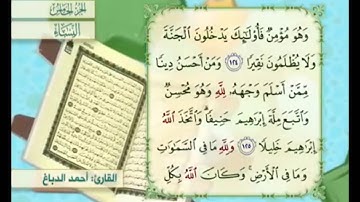 الجزء الخامس
النساء
وَهُوَ مُؤْمِنٌ فَأُو۟لَـٰٓئِكَ يَدْخُلُونَ ٱلْجَنَّةَ
وَلَا يُظْلَمُونَ نَقِيرًا ١٢٤ وَمَنْ أَحْسَنُ دِينًا
مِّمَّنْ أَسْلَمَ وَجْهَهُۥ لِلَّهِ وَهُوَ مُحْسِنٌ
وَٱتَّبَعَ مِلَّةَ إِبْرَٰهِيمَ حَنِيفًا ۗ وَٱتَّخَذَ ٱللَّهُ
إِبْرَٰهِيمَ خَلِيلًا ١٢٥ وَلِلَّهِ مَا فِى ٱلسَّمَـٰوَٰتِ
وَمَا فِى ٱلْأَرْضِ ۚ وَكَانَ ٱللَّهُ بِكُلِّ
القارئ: أحمد الدباغ